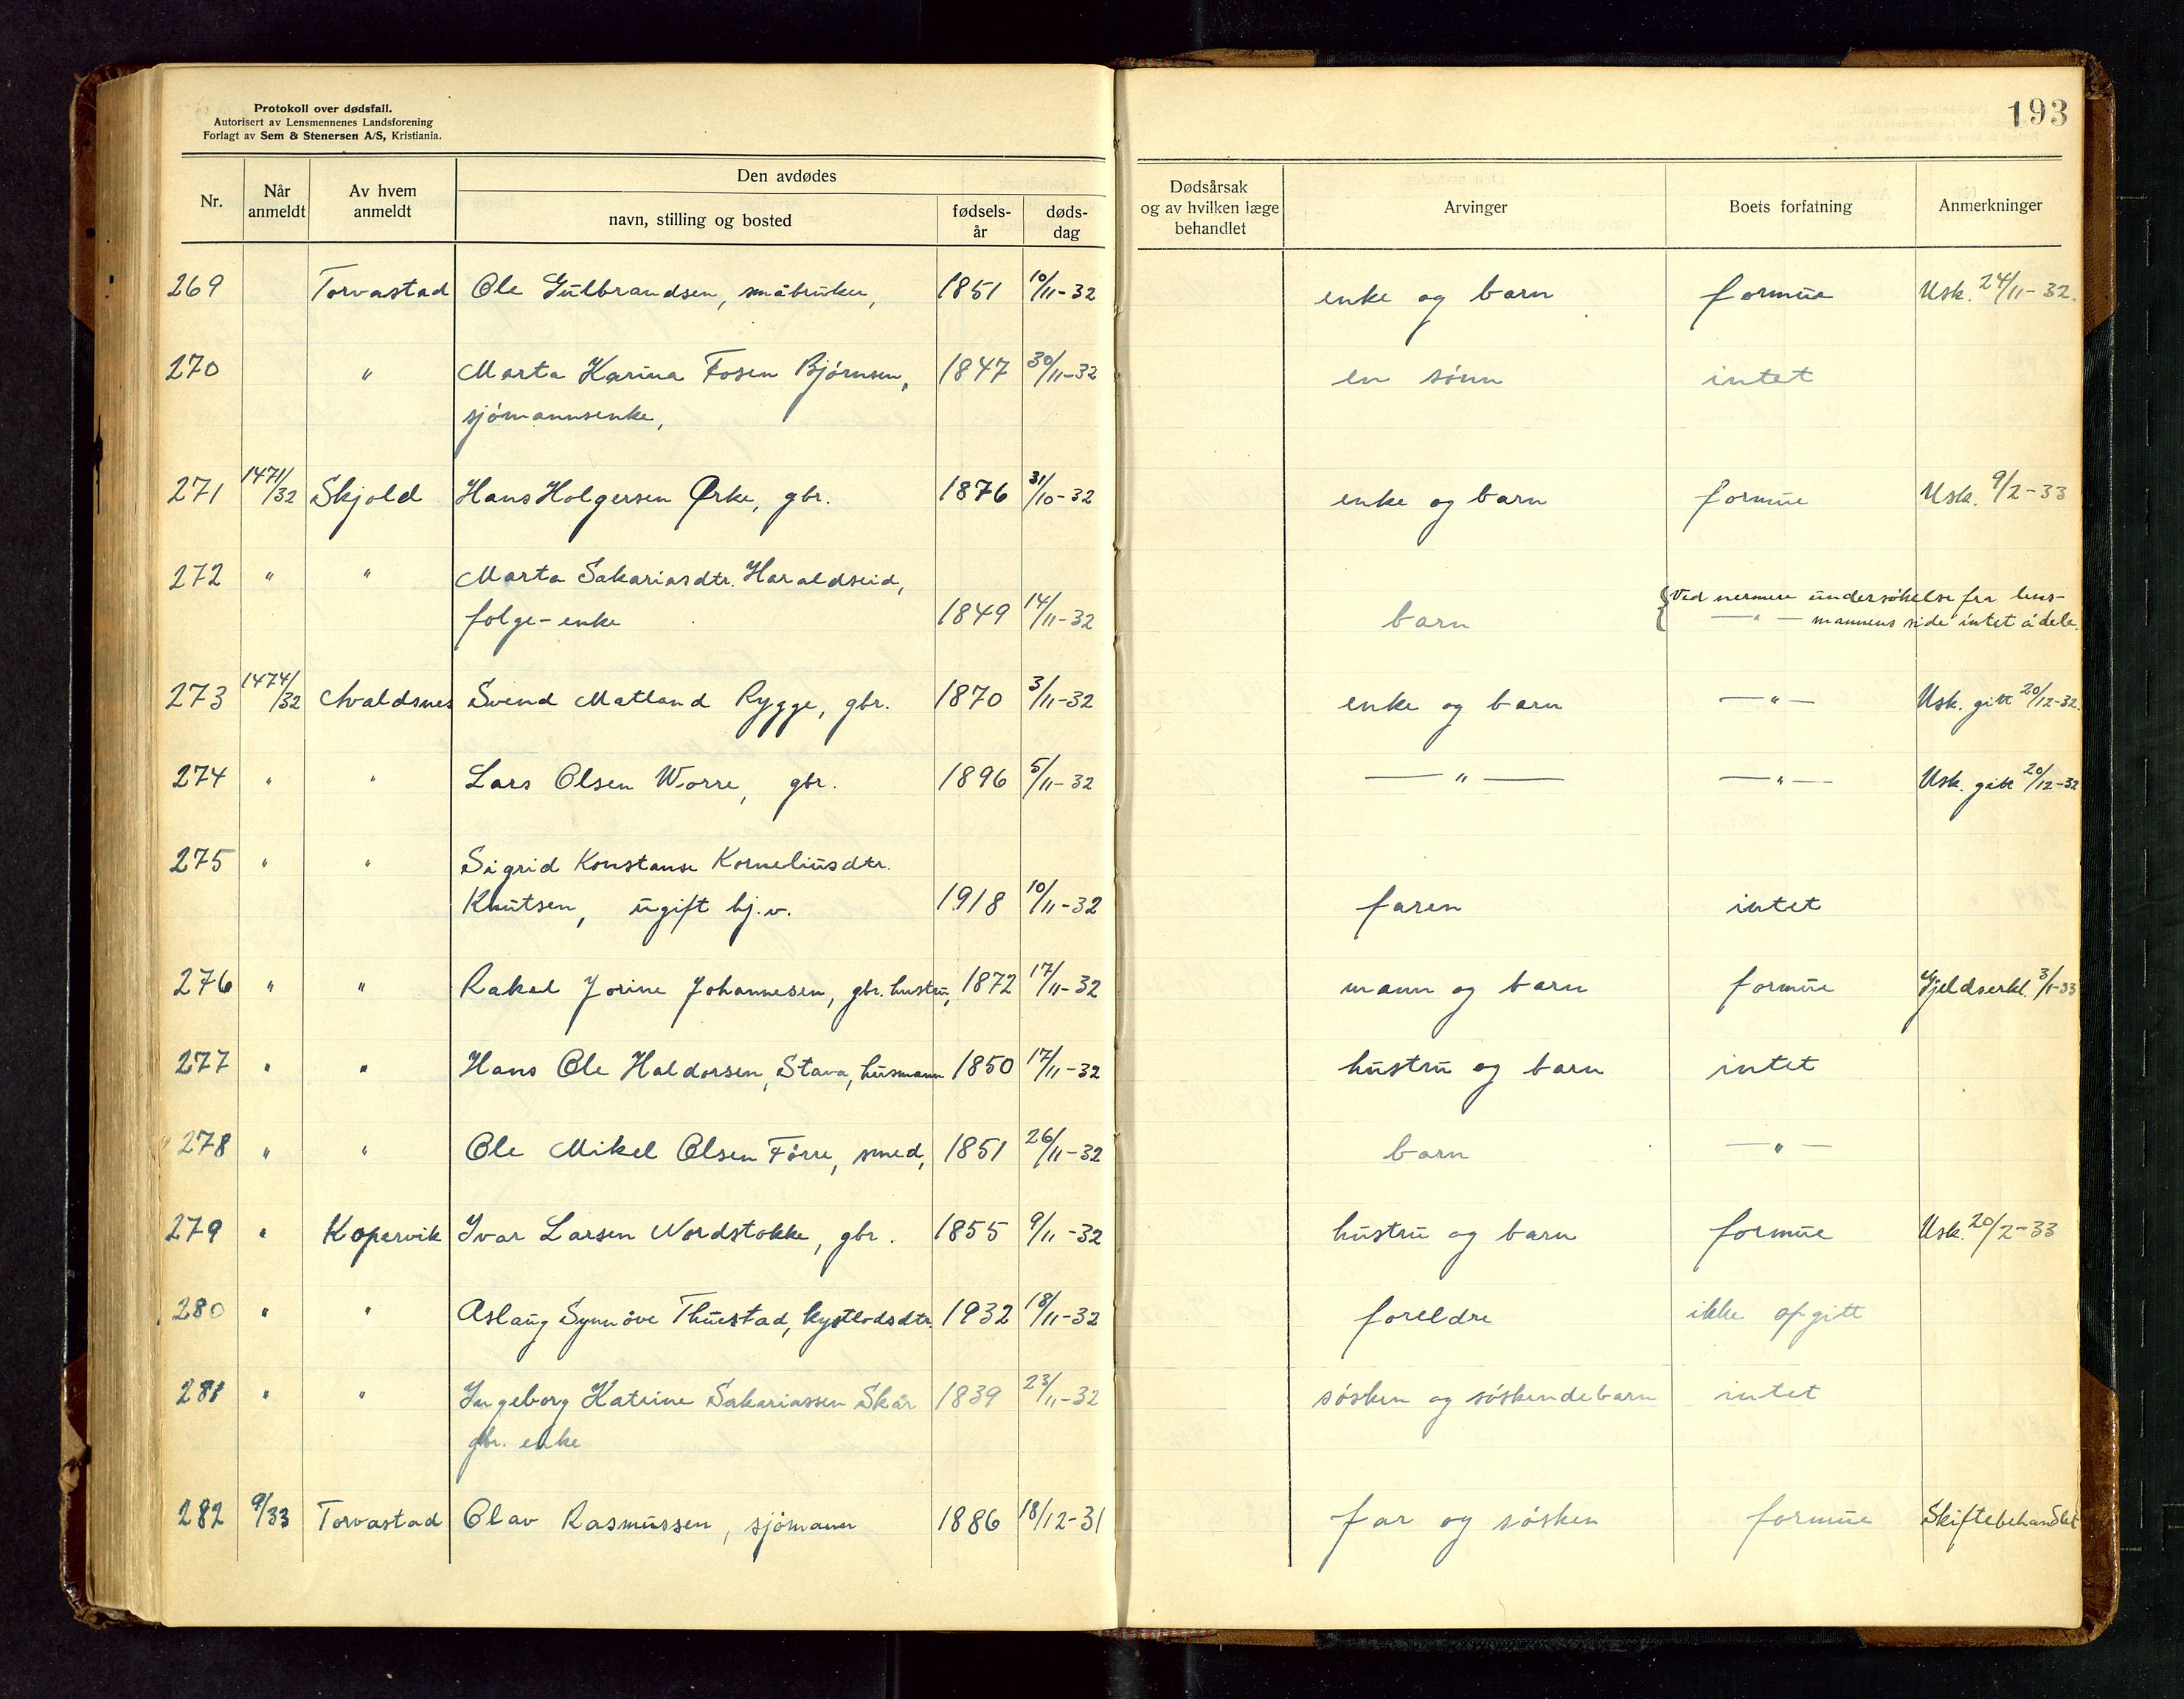 Protokoll over dødsfall.
Autorisert av Lensmennenes Landsforening
Forlagt av Sem & Stenersen A/S, Kristiania.
193
Nr. Når anmeldt Av hvem anmeldt Den avdødes navn, stilling og bosted fødsels-år døds-dag Dødsårsak og av hvilken læge behandlet Arvinger Boets forfatning Anmerkninger
269 Torvastad Ole Gulbrandsen, småbruker, 1851 10/11-32 enke og barn formue Usk. 24/11-32.
270 " Marta Karina Fosen Bjørnsen, 1847 30/11-32 en sønn intet
sjømannsenke,
271 1471/32 Skjold Hans Holgersen Ørke, gbr. 1876 31/10-32 enke og barn formue Usk. 9/2-33
272 " " Marta Sakariasdtr. Haraldseid,
Ved nermere undersøkelse fra lens-
folge-enke 1849 14/11-32 barn — " — mannens side intet å dele.
273 1474/32 Avaldsnes Svend Matland Rygge, gbr. 1870 3/11-32 enke og barn — " — Usk. gitt 20/12-32.
274 " " Lars Olsen Worre, gbr. 1896 5/11-32 — " — — " — Usk. gitt 20/12-32
275 " " Sigrid Konstanse Korneliusdtr.
Knutsen, ugift hj.v. 1918 10/11-32 faren intet
276 " " Rakel Jorine Johannesen, gbr. hustru, 1872 17/11-32 mann og barn formue Gjeldserkl. 3/1-33
277 " " Hans Ole Haldorsen, Stava, husmann 1850 17/11-32 hustru og barn intet
278 " " Ole Mikel Olsen Førre, smed, 1851 26/11-32 barn — " —
279 " Kopervik Ivar Larsen Nordstokke, gbr. 1855 9/11-32 hustru og barn formue Usk. 20/2-33
280 " " Aslaug Synnøve Thuestad, kystlodsdtr. 1932 18/11-32 foreldre ikke opgitt
281 " " Ingeborg Katrine Sakariassen Skår 1839 23/11-32 søsken og søskendebarn intet
gbr. enke
282 9/33 Torvastad Olav Rasmussen, sjømann 1886 18/12-31 far og søsken formue Skiftebehandlet